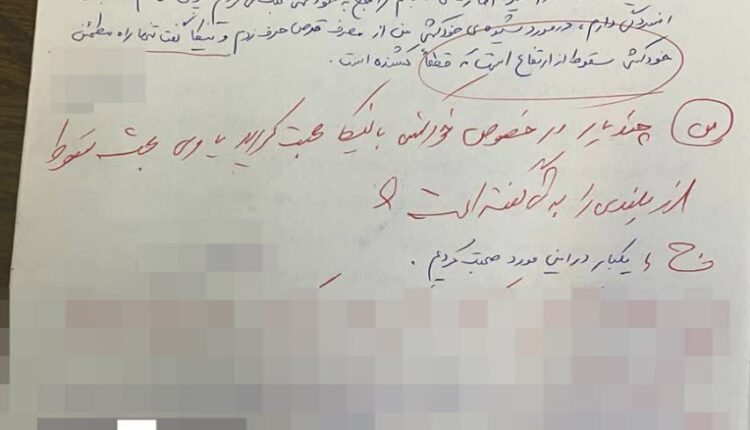 افسردگی دارم، در مورد شیوه‌ی خودکشی من از مصرف قرص حرف زدم و نیکا گفت تنها راه مطمئن
خودکشی سقوط از ارتفاع است که قطعاً کشنده است.
س) چند بار در خصوص خودکشی با نیکا صحبت کردید یا وی بحث سقوط
از بلندی را به گفته است؟
ج) یکبار در این مورد صحبت کردیم.